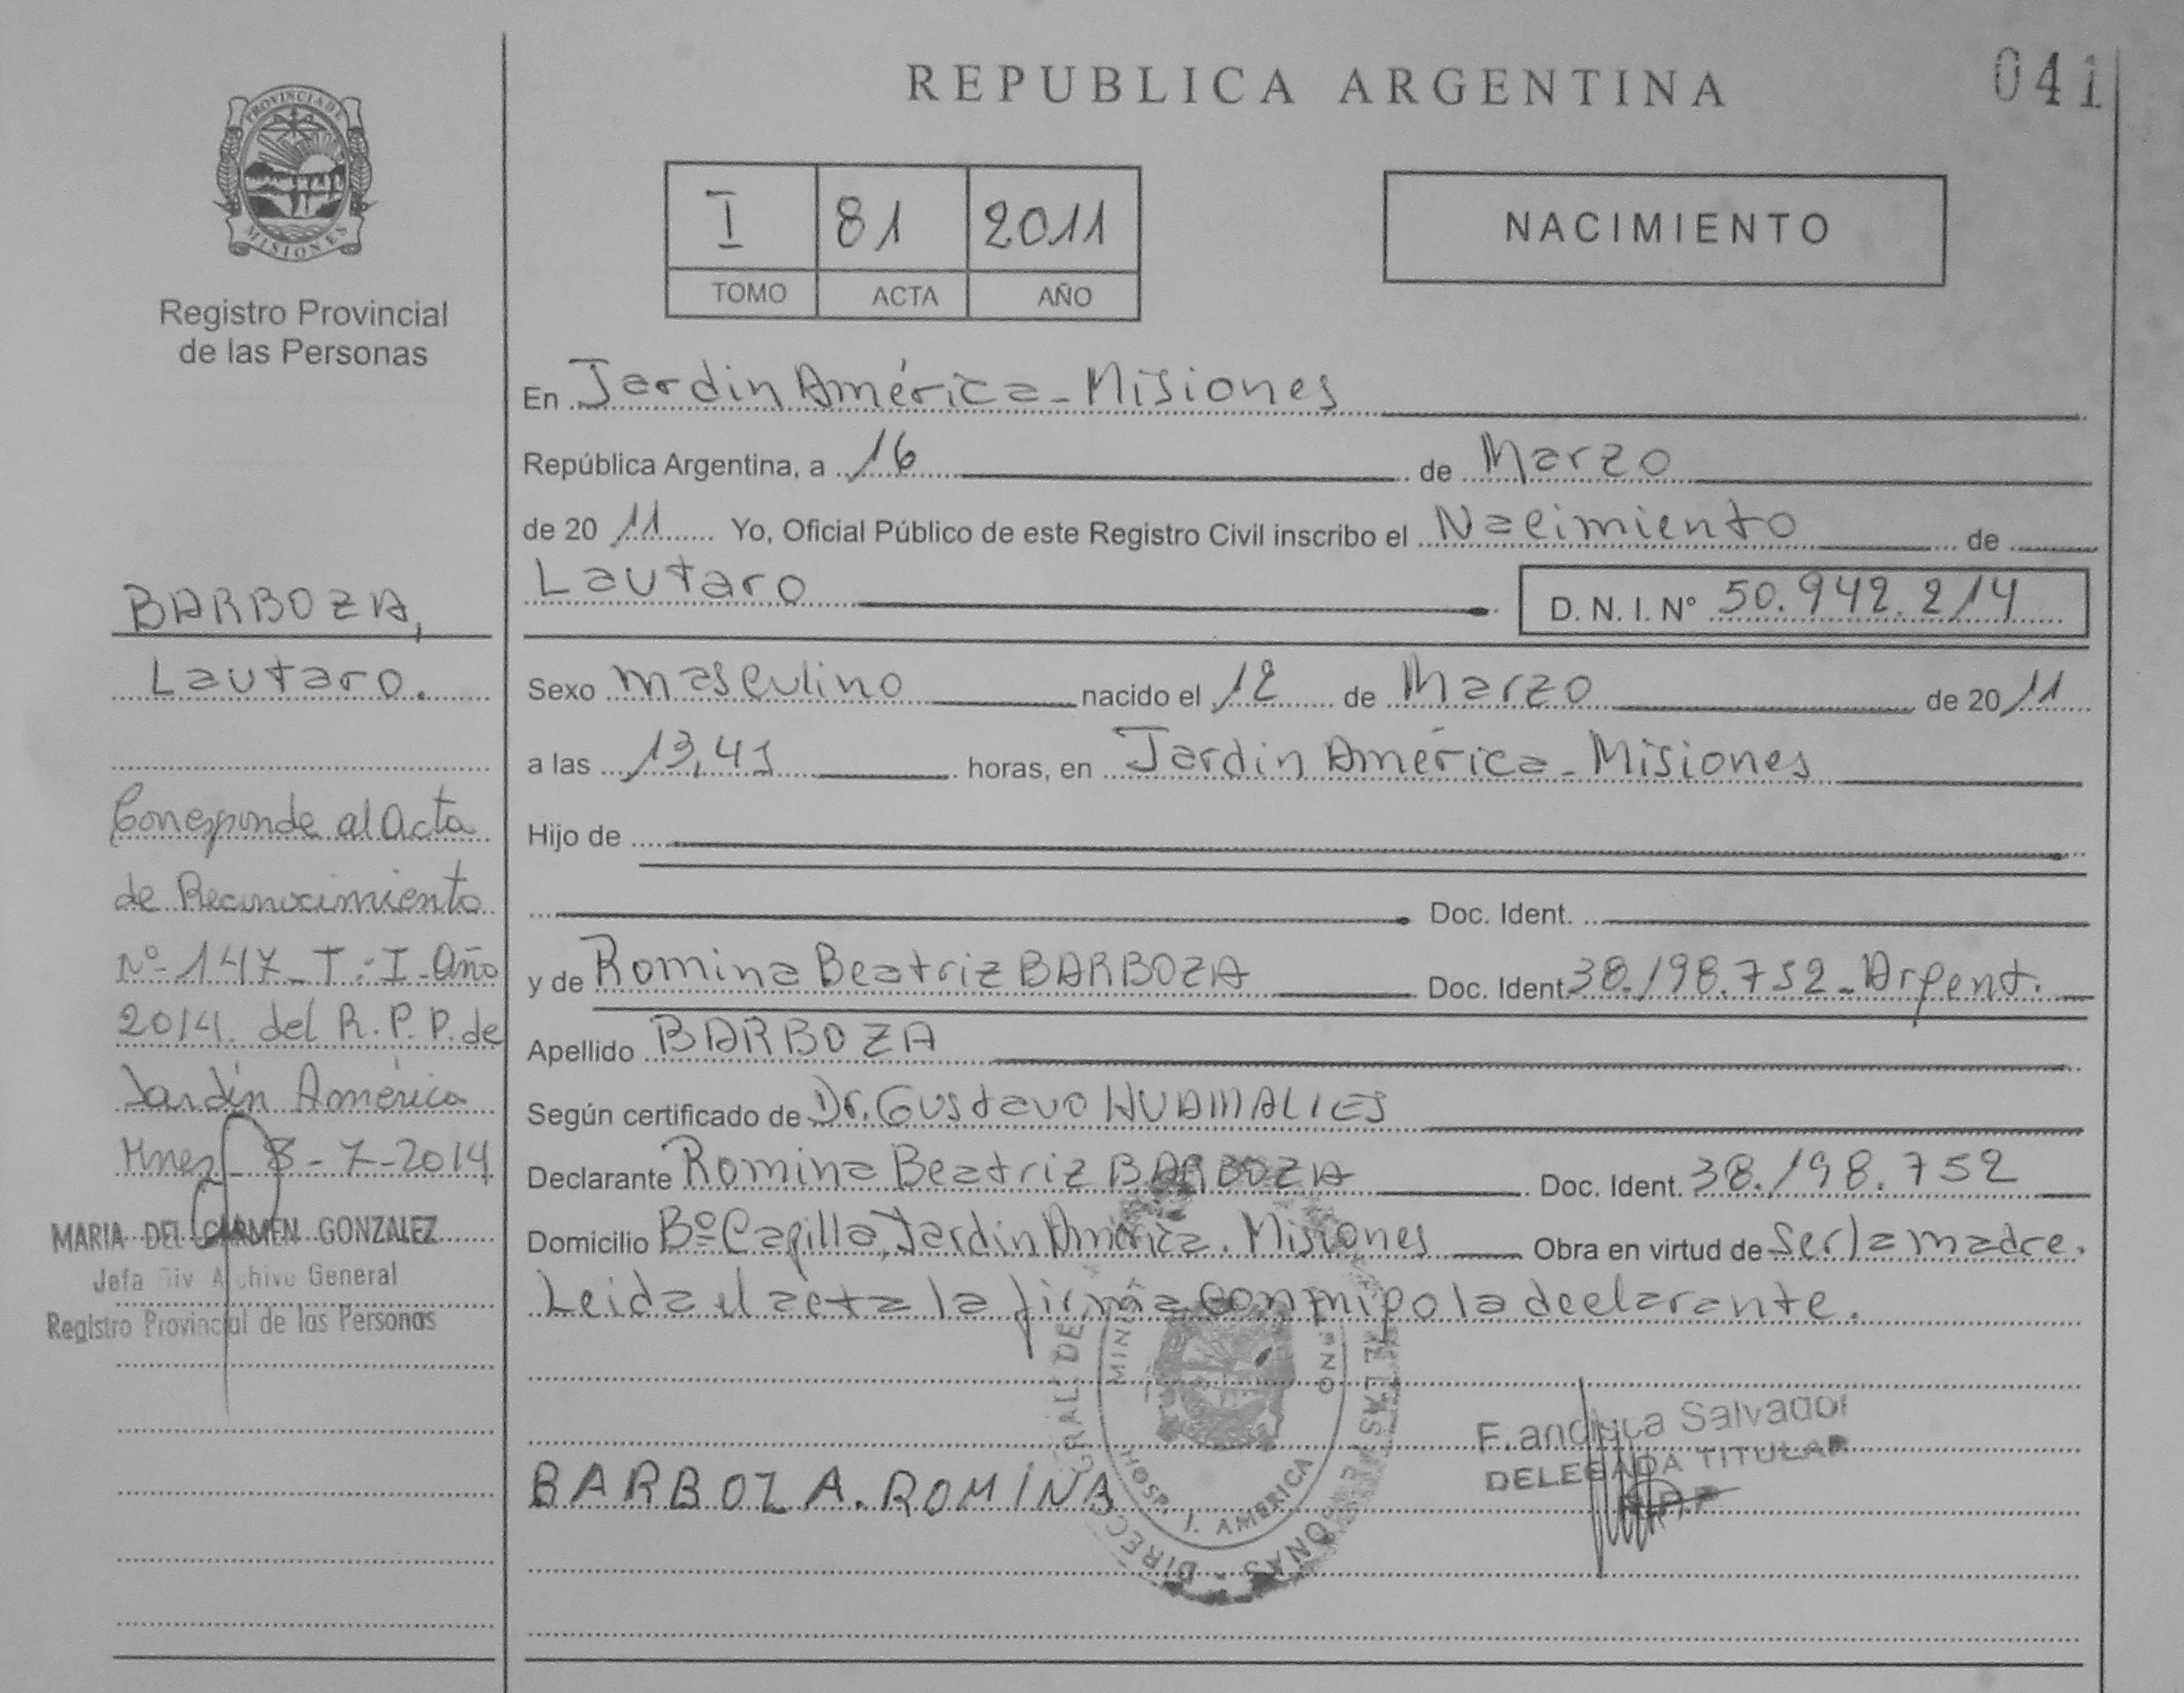 REPUBLICA ARGENTINA
041
PROVINCIA DE
MISIONES
Registro Provincial
de las Personas
I 81 2011
TOMO ACTA AÑO
NACIMIENTO
En Jardin América - Misiones
República Argentina, a 16 de Marzo
de 20 11 Yo, Oficial Público de este Registro Civil inscribo el Nacimiento de
Lautaro D. N. I. N° 50.942.214
Sexo masculino nacido el 12 de Marzo de 20 11
a las 13,45 horas, en Jardin América - Misiones
Hijo de
Doc. Ident.
y de Romina Beatriz BARBOZA Doc. Ident. 38.198.752 - Argent.
Apellido BARBOZA
Según certificado de Dr. Gustavo HUAMALIES
Declarante Romina Beatriz BARBOZA Doc. Ident. 38.198.752
Domicilio Bº Capilla, Jardin América. Misiones Obra en virtud de Ser la madre.
Leida el acta la firma conmigo la declarante.
BARBOZA. ROMINA
BARBOZA,
Lautaro.
Corresponde al Acta
de Reconocimiento
Nº 147 - T: I - Año
2014. del R. P. P. de
Jardín América
Mnes 8 - 7 - 2014
MARIA DEL CARMEN GONZALEZ
Jefa Div Archivo General
Registro Provincial de las Personas
HOSP. J. AMERICA
Francisca Salvador
DELEGADA TITULAR
R.P.P